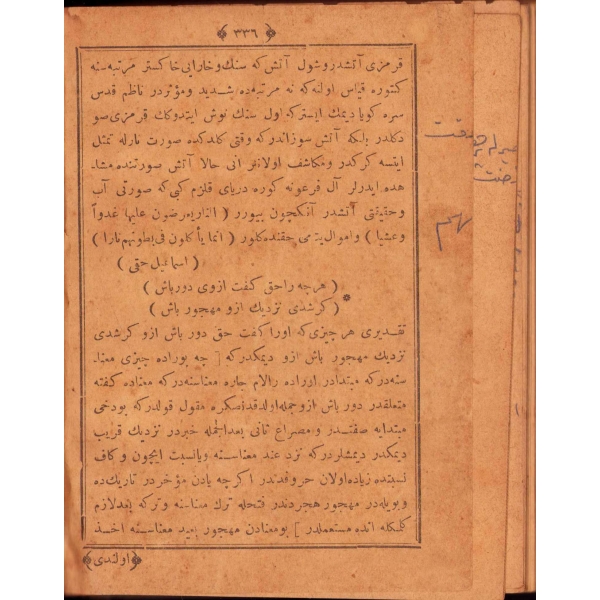 ﴿ ٣٣٦ ﴾
قرمزی آتشدر و شول آتش که سنك و خارایی خا کستر مرتبه سنه
کتوره قیاس اولنه که نه مرتبه ده شدید و مؤثر در ناظم قدس
سره کویا دیمك ایستر که اول سنك نوش ایتدوکك قرمزی صو
دکلدر بلکه آتش سوزاندر که وقتی کلدکده صورت نارله تمثل
ایتسه کرکدر و مکاشف اولانلر انی حالا آتش صورتنده مشا۔
هده ایدرلر آل فرعونه کوره دریای قلزم کبی که صورتی آب
وحقیقتی آتشدر آنکچون بیورر ( النار یعرضون علیها غدوا
وعشیا ) و اموال یتامی حقنده کلور ( انما یأکلون فی بطونهم نارا )
( اسماعیل حقی )
( هر چه را حق کفت ازوی دور باش )
* ( کرشدی نزدیك ازو مهجور باش )
تقدیری هر چیزی که اورا کفت حق دور باش ازو کرشدی
نزدیك مهجور باش ازو دیمکدر که [ چه بوراده چیزی معنا۔
سنه در که مبتدادر اراده رالام جاره معناسنه در که معناده کفته
متعلقدر دور باش ازو جمله اولدقدنصکره مقول قولدر که بودخی
مبتدایه صفتدر و مصراع ثانی بعد الجمله خبردر نزدیك قریب
دیمکدر دیمشلردر که نزد عند معناسنه ویا نسبت ایچون و کاف
نسبتده زیاده اولان حروفدندر اکرچه یادن مؤخردر تاریك ده
وبویله در مهجور هجردندر فتحله ترك معناسنه و ترکه بعد لازم
کلمکله انده مستعملدر ] بومعنادن مهجور بعید معناسنه اخذ
﴿ اولندی ﴾